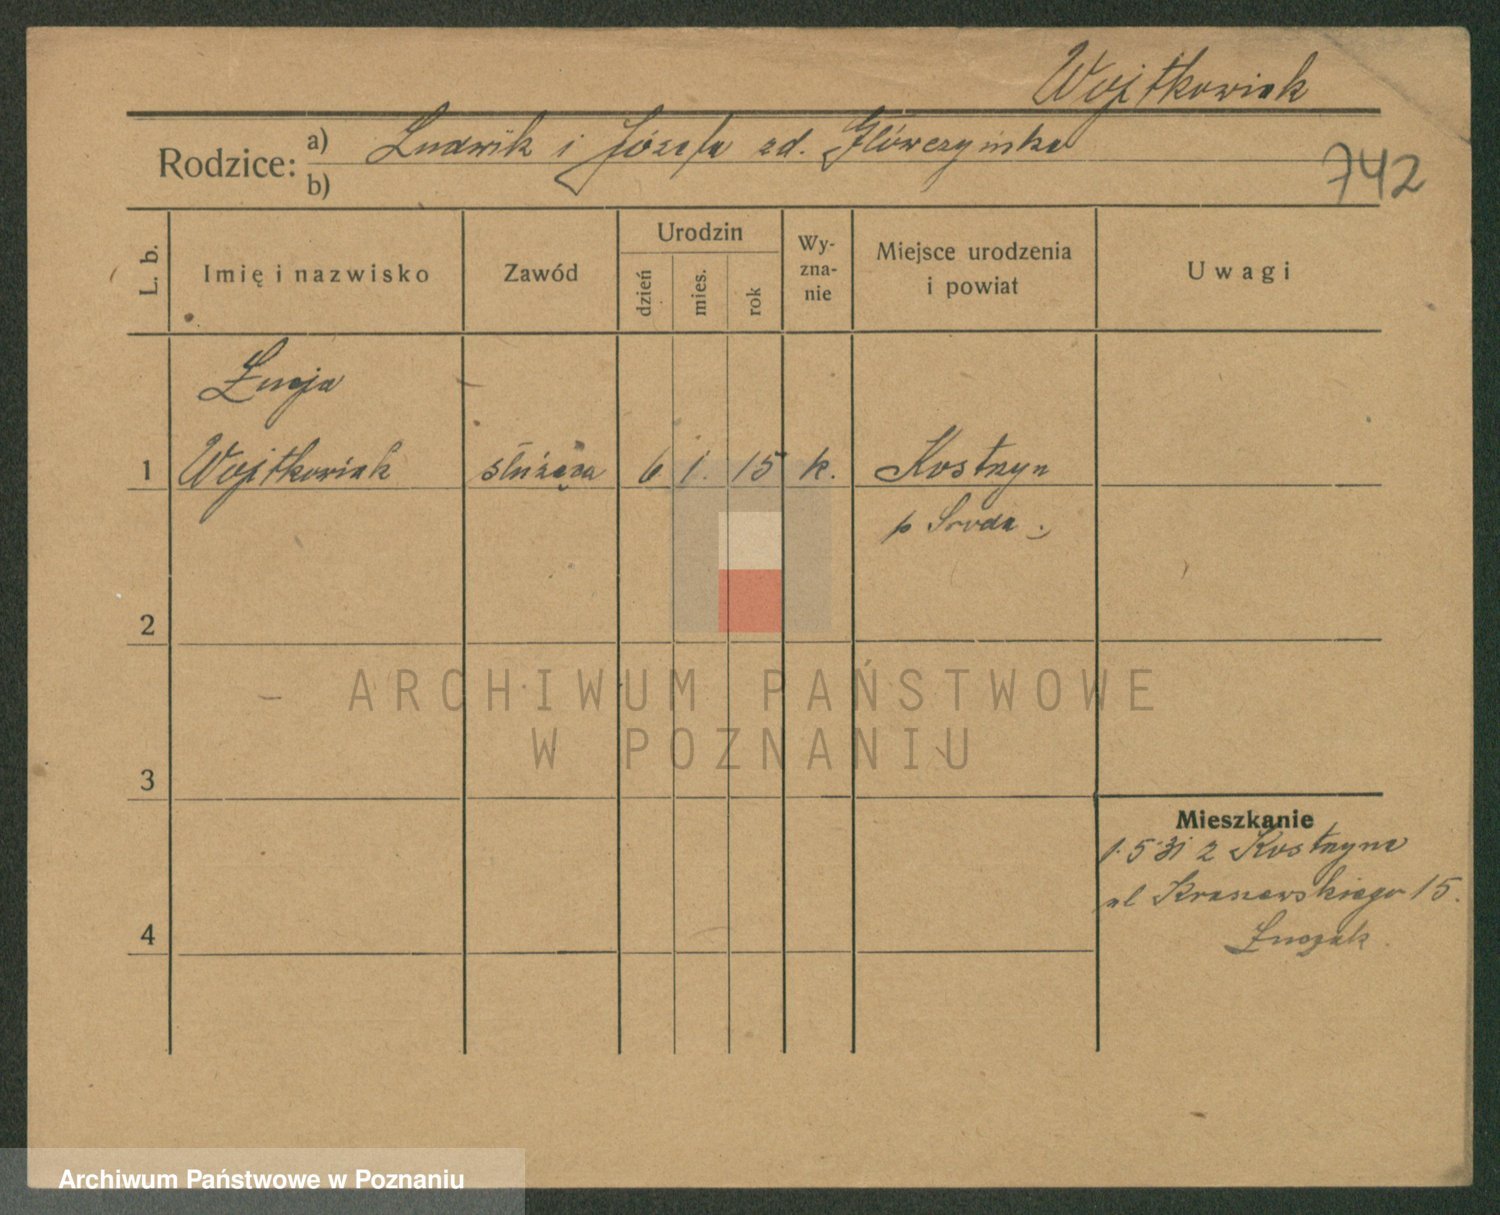 Wojtkowiak
Rodzice: a) Ludwik i Józefa zd. Główczyńska
b)
742
L. b.
Imię i nazwisko
Zawód
Urodzin
dzień
mies.
rok
Wy-
zna-
nie
Miejsce urodzenia
i powiat
Uwagi
Łucja
1 Wojtkowiak służąca 6 1. 15 k. Kostrzyn
p Środa.
2
ARCHIWUM PAŃSTWOWE
W POZNANIU
3
Mieszkanie
1.5 31 z Kostrzyna
ul Kraszewskiego 15.
4
Archiwum Państwowe w Poznaniu